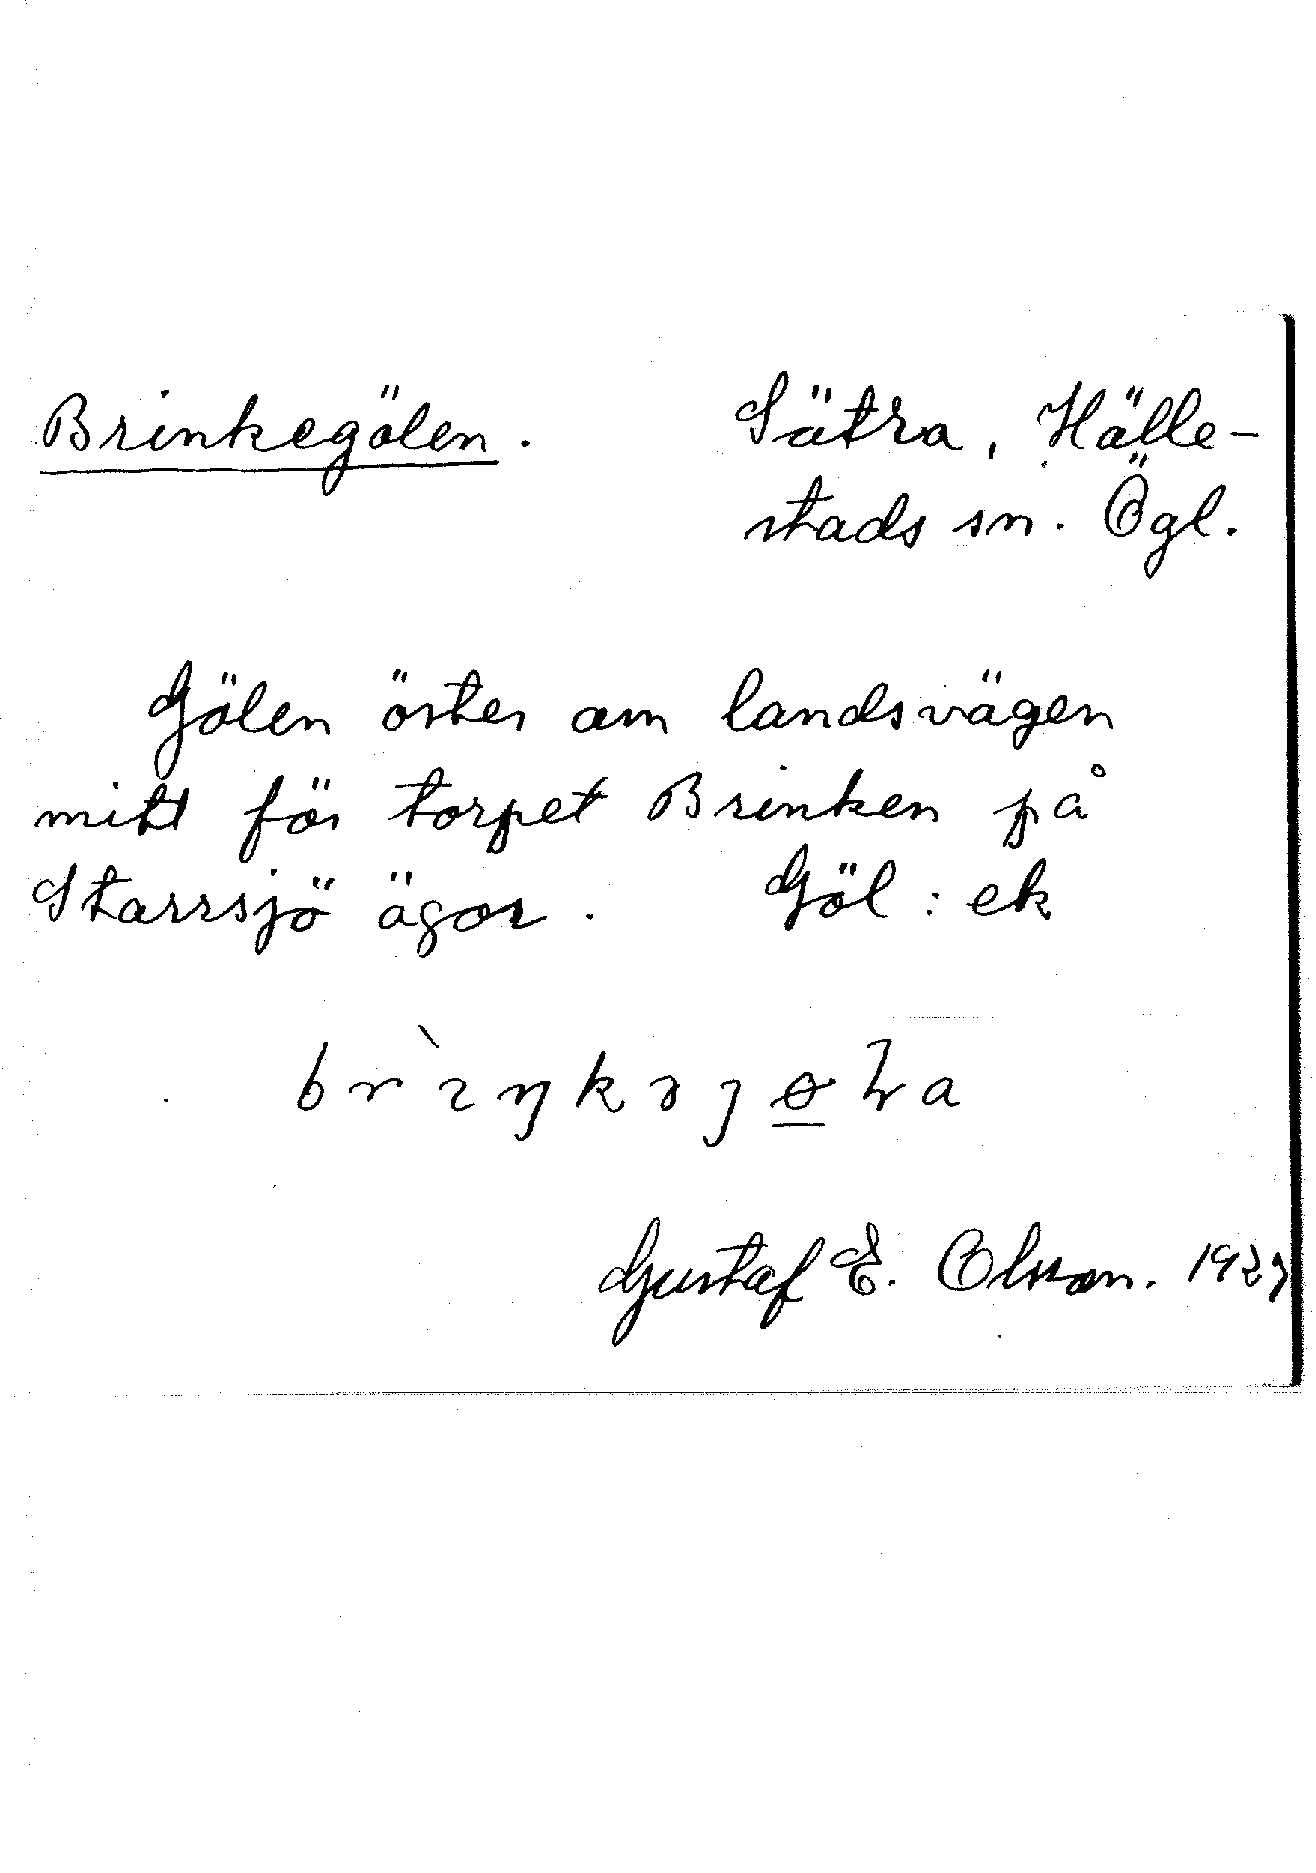 Brinkegölen. Sätra, Hälle-
stads sn. Ögl.
Gölen öster om landsvägen
mitt för torpet Brinken på
Starrsjö ägor. Göl : ek
Gustaf E. Olsson.